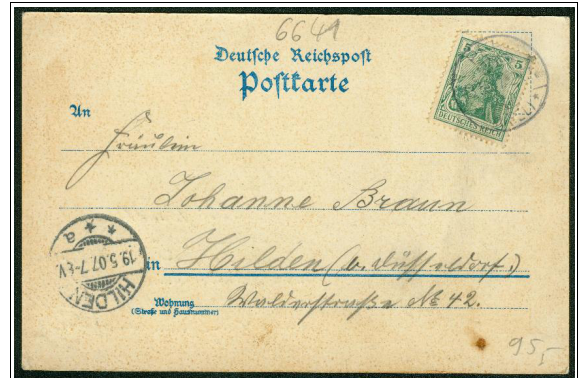 6641
Deutsche Reichspost
Postkarte
5 5
DEUTSCHES REICH
An
Fräulein
Johanne Braun
in Hilden (b. Düsseldorf.)
Wohnung
(Straße und Hausnummer)
Walderstraße № 42.
HILDEN
19.5.07.7-8V.
a
95,-